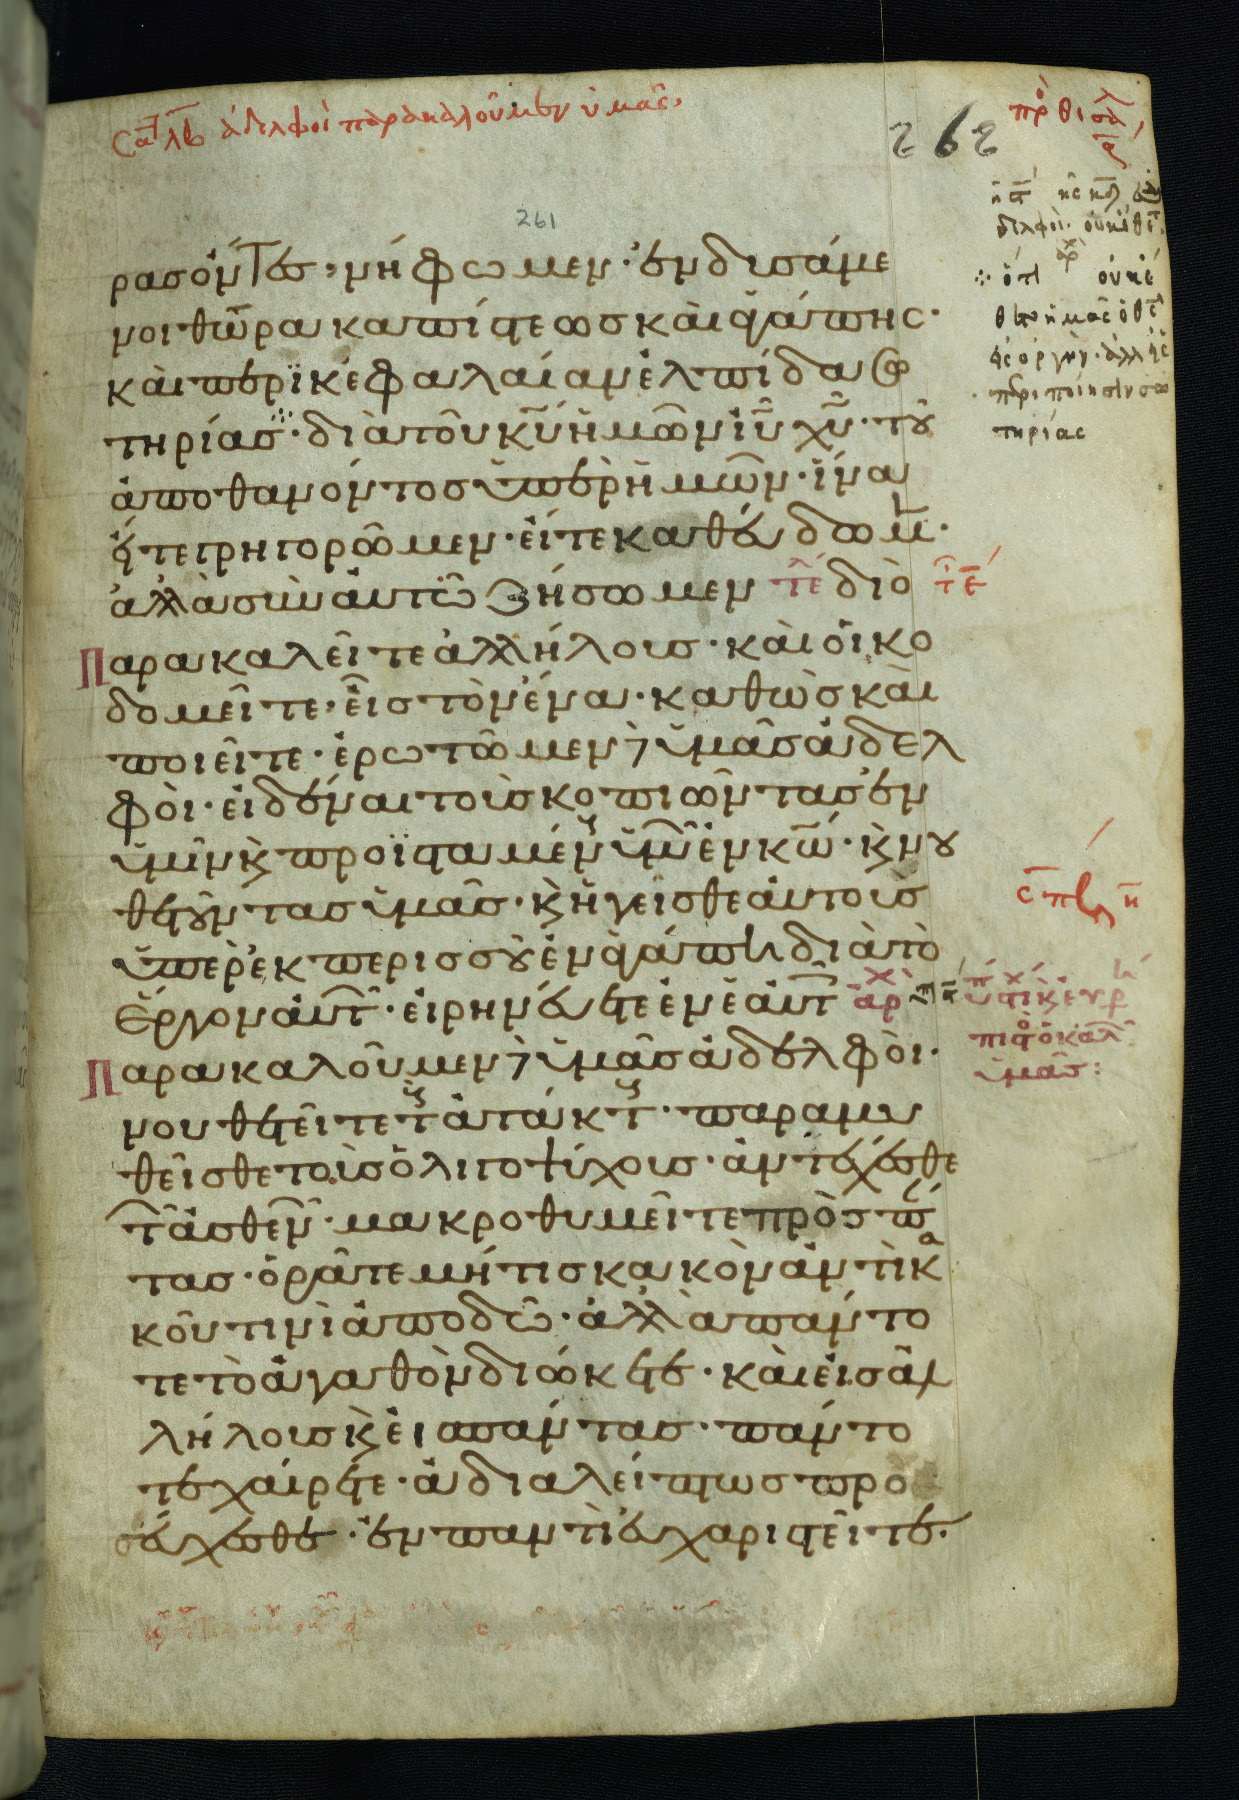 ἀδελφοὶ παρακαλοῦμεν ὑμᾶς
262
261
ρας ὄντες, νήφωμεν· ἐνδυσάμε
νοι θώρακα πίστεως καὶ ἀγάπης·
καὶ περικεφαλαίαν ἐλπίδα σω
τηρίας· διὰ τοῦ κ̅υ̅ ἡμῶν ι̅υ̅ χ̅υ̅· τοῦ
ἀποθανόντος ὑπὲρ ἡμῶν· ἵνα
εἴτε γρηγορῶμεν· εἴτε καθεύδωμεν·
ἀλλὰ σὺν αὐτῷ ζήσωμεν τε διὸ
Παρακαλεῖτε ἀλλήλους· καὶ οἰκο
δομεῖτε· εἷς τὸν ἕνα· καθὼς καὶ
ποιεῖτε· ἐρωτῶμεν δὲ ὑμᾶς ἀδελ
φοὶ· εἰδέναι τοὺς κοπιῶντας ἐν
ὑμῖν κ̀ προϊσταμένους ὑμῶν ἐν κ̅ω̅· κ̀ νου
θετοῦντας ὑμᾶς· κ̀ ἡγεῖσθε αὐτοὺς
ὑπερεκπερισσοῦ ἐν ἀγάπῃ διὰ τὸ
ἔργον αὐτῶν· εἰρηνεύετε ἐν ἑαυτοῖς ἀρχ
Παρακαλοῦμεν δὲ ὑμᾶς ἀδελφοὶ·
νουθετεῖτε τοὺς ἀτάκτους· παραμυ
θεῖσθε τοὺς ὀλιγοψύχους· ἀντέχεσθε
τῶν ἀσθενῶν· μακροθυμεῖτε πρὸς πάν
τας· ὁρᾶτε μή τις κακὸν ἀντὶ κα
κοῦ τινὶ ἀποδῷ· ἀλλὰ πάντο
τε τὸ ἀγαθὸν διώκετε· καὶ εἰς ἀλ
λήλους κ̀ εἰς πάντας· πάντο
τε χαίρετε· ἀδιαλείπτως προ
σεύχεσθε· ἐν παντὶ εὐχαριστεῖτε·
δελφοὶ· οὐκ ἔθετο
ὅτι οὐκ ἔ
θετο ἡμᾶς ὁ θ̅ς̅
εἰς ὀργὴν· ἀλλ' εἰς
περιποίησιν σω
τηρίας
ὑμᾶς: